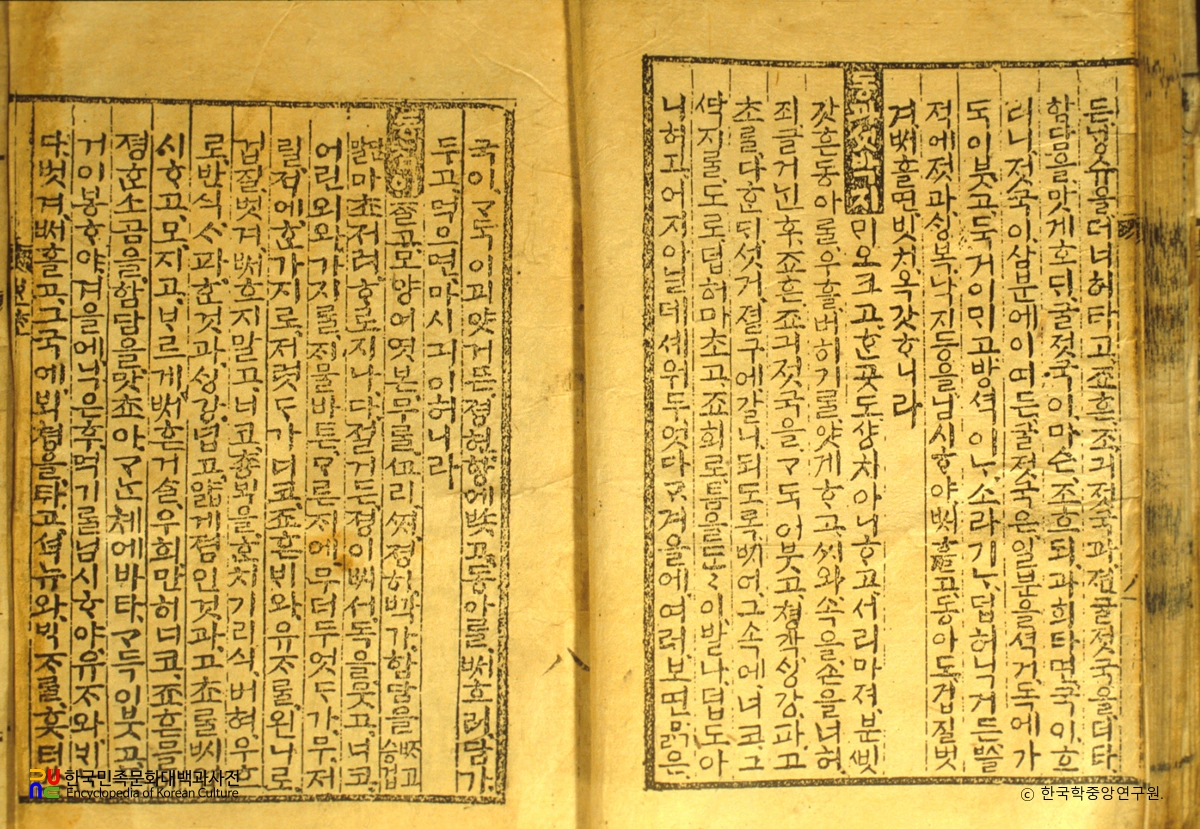 든냉슈을더너허타고죠흔조긔젓국과졉굴젓국을더타
함담을맛게호ᄃᆡ굴젓국이마슨조흐되과히타면국이흐
리니젓국이삼분에이여든굴젓국은일분을셕거독에가
도이붓고둑거이 방셕이ᄂᆞ소라기ᄂᆞ덥허닉거든쓸
적에젓과싱복낙지등을님시ᄒᆞ야ᄡᅥ흘고동아도겁질벗
겨ᄡᅥ흘면빗치옥갓ᄒᆞ니라
동과셧박지미오크고흔곳도샹치아니ᄒᆞ고서리마져분빗
갓흔동아를우흘버히기를얏게ᄒᆞ고씨와속을손을너허
죄글거닌후죠흔죠긔젓국을ᄀᆞ독이붓고쳥각싱강파고
초를다흔ᄃᆡ섯거졀구에갈니되도록ᄡᅥ어그속에너코그
싹지를도로덥허마초고죠희로틈을든든이발나덥도아
니허고어지아닐데세워두엇다ᄀᆞ겨을에여러보면맑은
국이ᄀᆞ독이괴얏거든졍헌항에 동아를ᄡᅥ흐러담가
두고먹으면마시긔이허니라
동침이쟐고모양여엿분무울ᄭᅩ리ᄶᆡ졍히ᄭᅡᆨ가함담을
마초저려ᄒᆞ로지나다절거든졍이ᄡᅵ서독을뭇고너코
어린외와가지를 저에무더두엇ᄃᆞ가무저
릴적에ᄒᆞᆫ가지로저럿ᄃᆞ가다코죠흔ᄇᆡ와유ᄌᆞ를왼니로
겁질벗겨ᄡᅥ흐지말고너코 흰뇌을ᄒᆞᆫ치기리식버혀우ᄒᆞ
로반식ᄉᆞ파ᄒᆞᆫ것과싱강넙고얇게졈인것과고쵸를씨
시ᄒᆞ고모지고ᄇᆞ르게ᄡᅥ흔거슬우희만허너코죠흔믈
졍ᄒᆞᆫ소곰을함담을맛쵸아ᄀᆞᄂᆞᆫ체에바타ᄀᆞ득이붓고
거이봉ᄒᆞ야겨을에닉은후먹기를님시ᄒᆞ야유ᄌᆞ와ᄇᆡ
다벗겨ᄡᅥ흘고그국에 타고셕뉴와빅ᄌᆞ를흣터
八
한국민족문화대백과사전
Encyclopedia of Korean Culture
ⓒ 한국학중앙연구원.